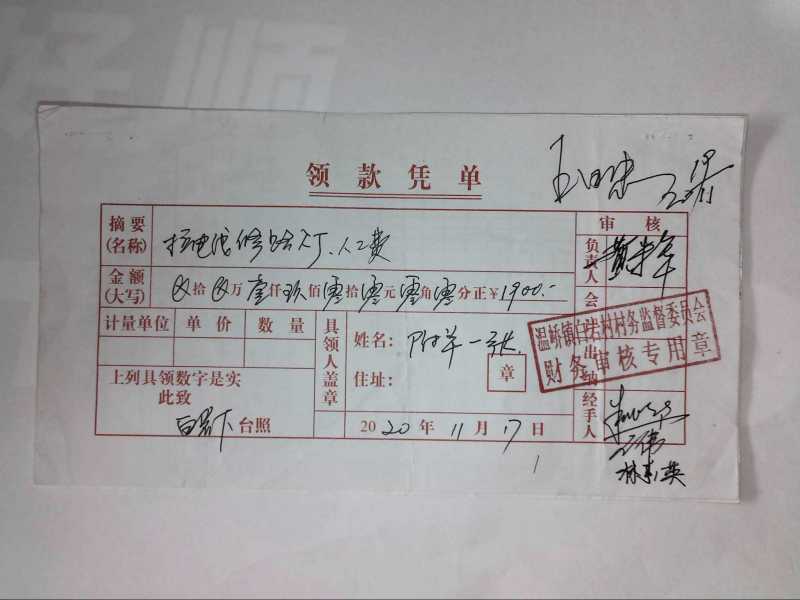 领款凭单
19/11
摘要 审核
(名称) 修路灯、人工费 负责人
金额
(大写) 拾 万 壹仟玖佰零拾零元零角零分正￥1900.- 会
计量单位 单价 数量 具领人盖章 姓名: 附单一张
温峤镇 村村务监督委员会
财务审核专用章
住址: 章 出纳
上列具领数字是实
此致
台照 2020年11月17日 经手人